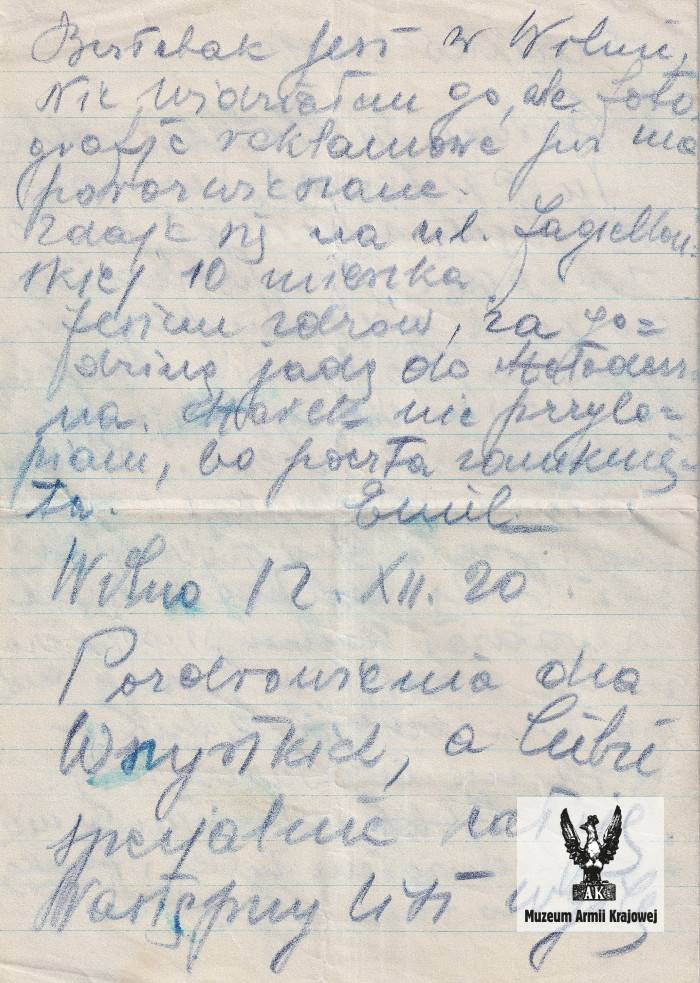 jest w Wilnie.
Nie widziałem go, ale foto
grafje reklamowe już ma
porozwieszane.
Zdaje się na ul. Jagielloń-
skiej 10 mieszka
Jestem zdrów, za go=
dzinę jadę do Mołodecz-
na. Marek nie przyle=
piam, bo poczta zamknię-
ta. Emil
Wilno 12. XII. 20.
Pozdrowienia dla
Wszystkich, a Ciebie
specjalnie całuję.
Następny list
AK
Muzeum Armii Krajowej